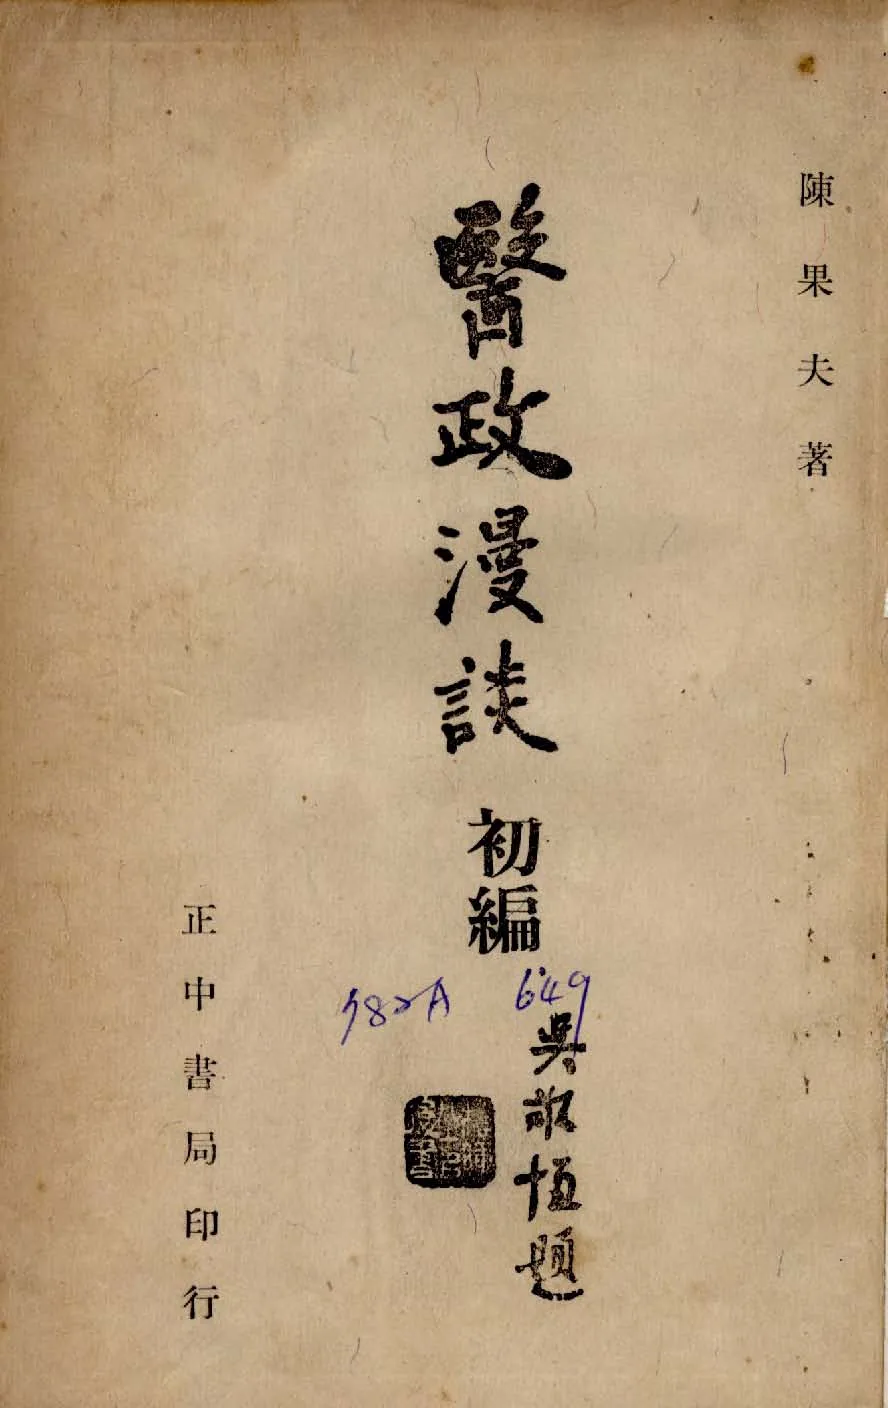 陳果夫著
醫政漫談初編
吳敬恆題
正中書局印行
649